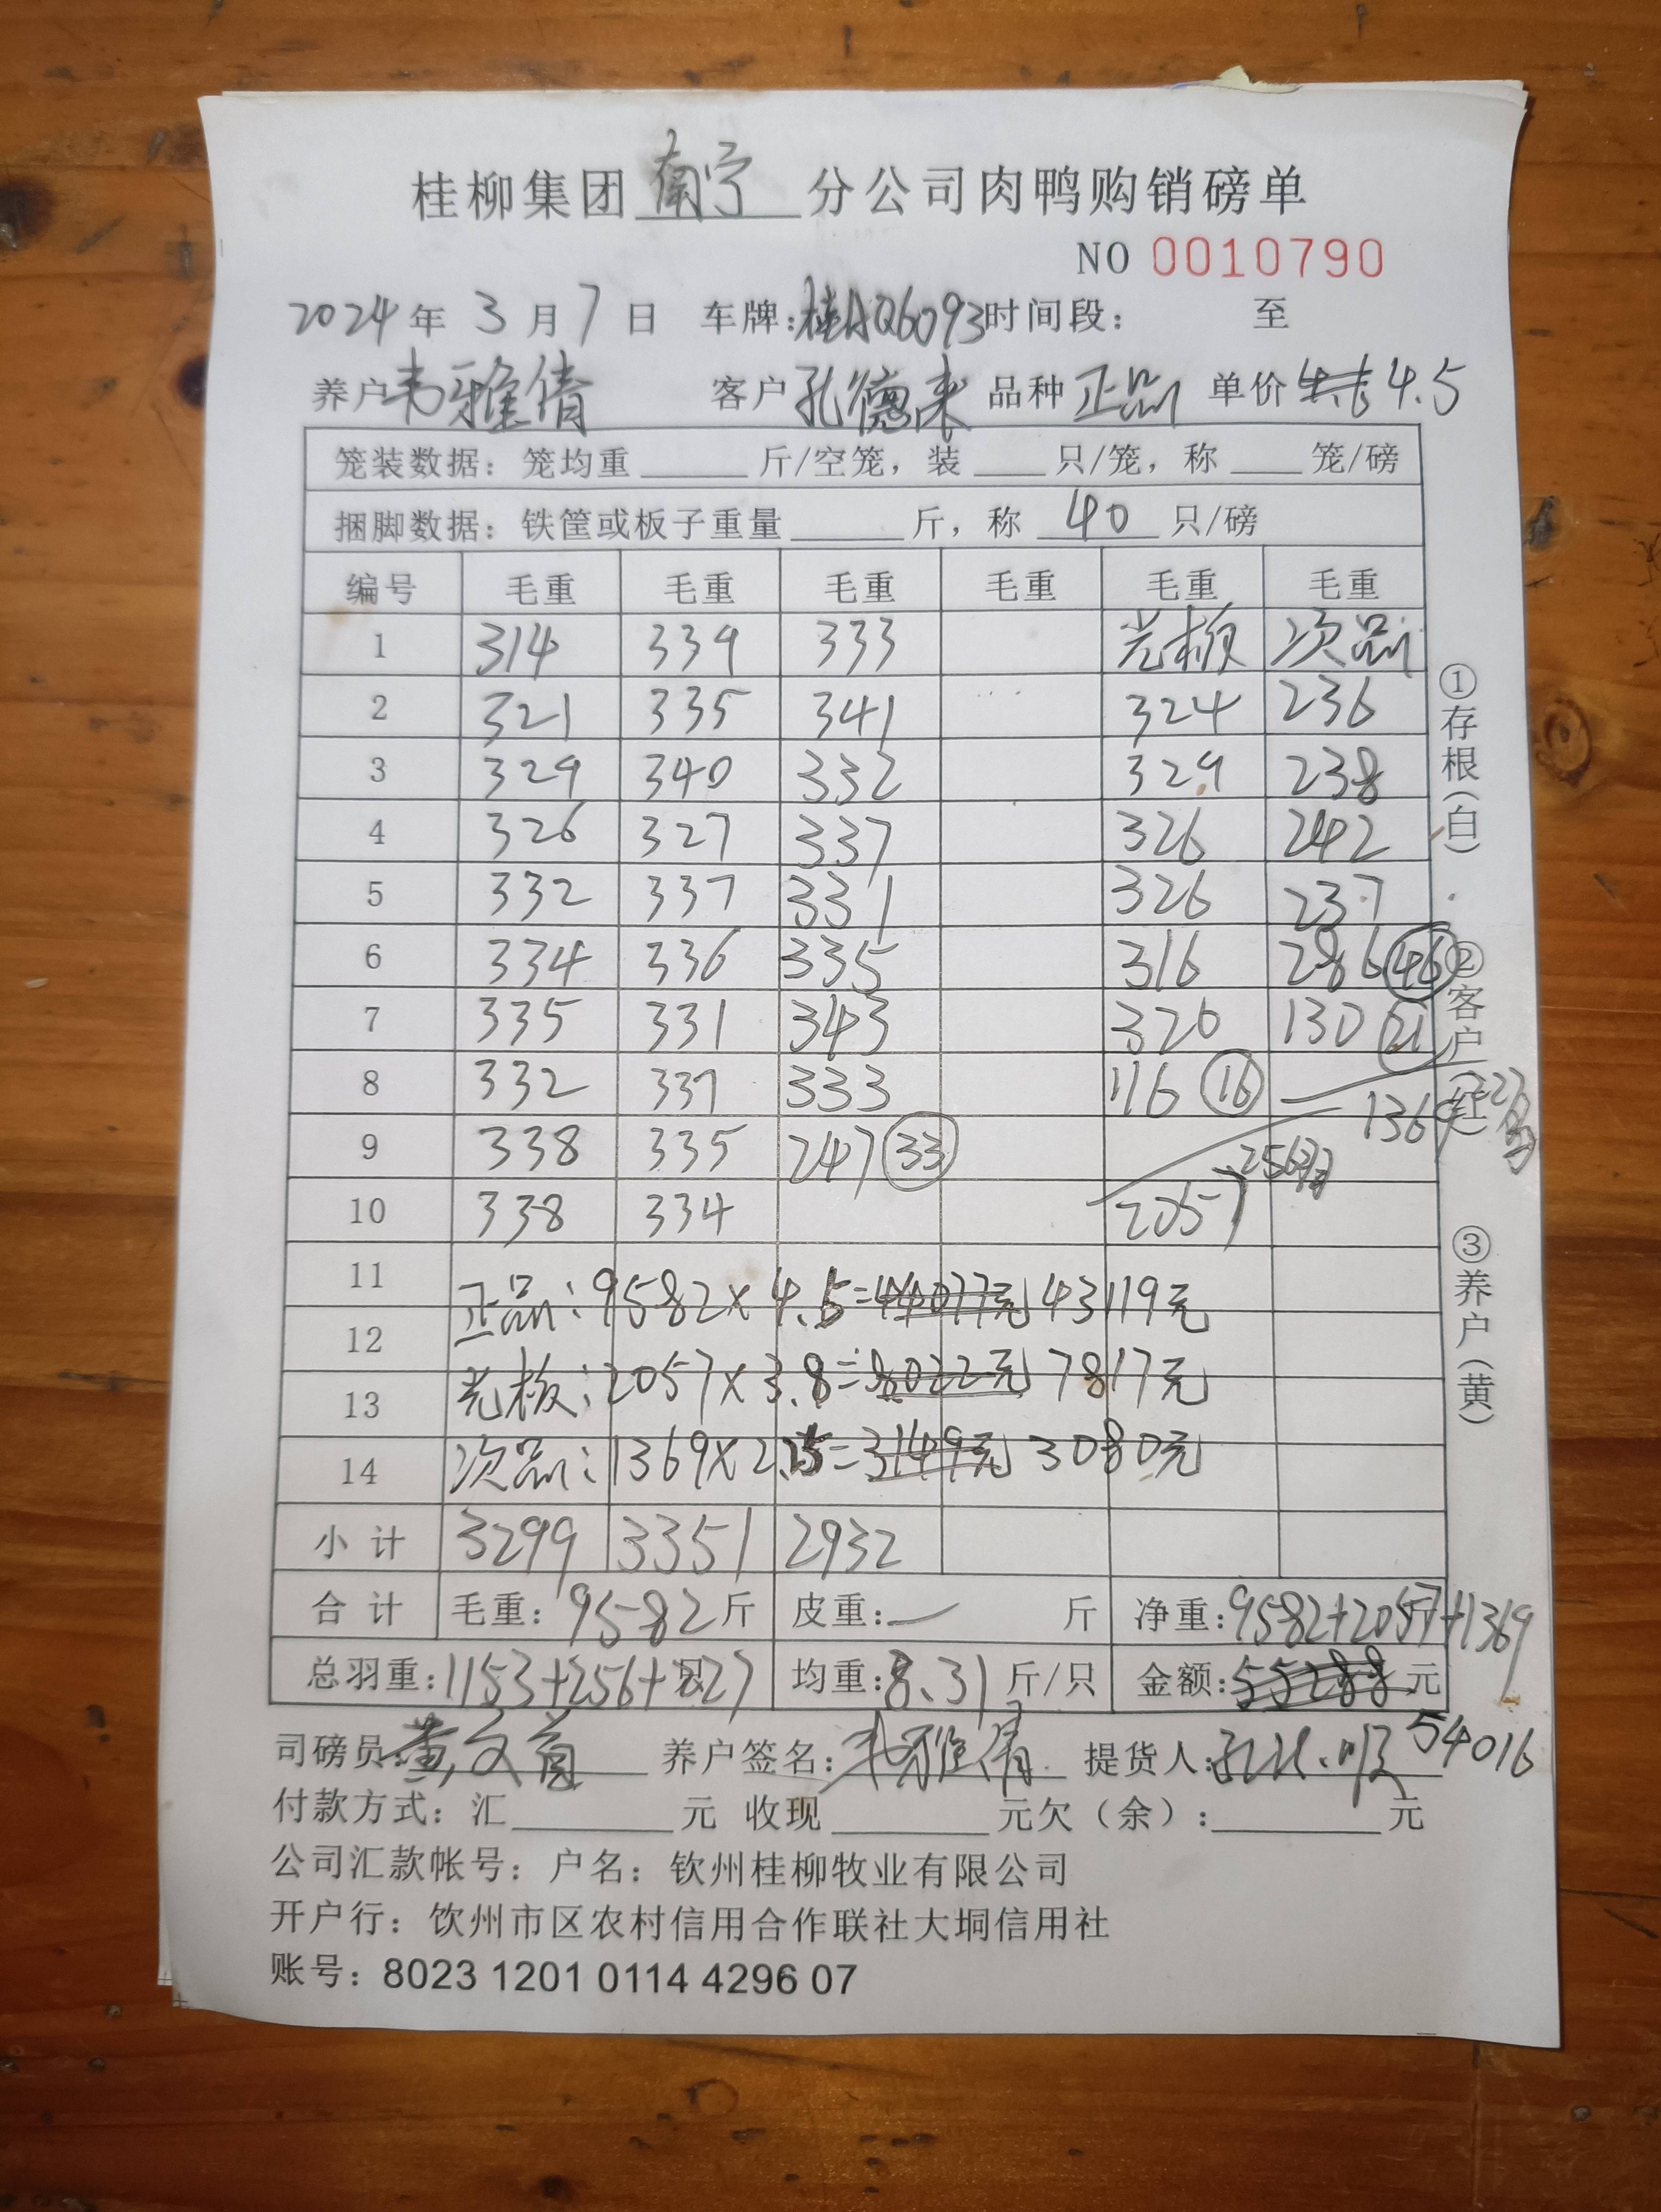 桂柳集团南宁分公司肉鸭购销磅单
NO 0010790
2024年3月7日 车牌:桂AQ6093时间段: 至
养户韦雅倩 客户孔德来 品种正品 单价 4.5
笼装数据: 笼均重 斤/空笼, 装 只/笼, 称 笼/磅
捆脚数据: 铁筐或板子重量 斤, 称 40 只/磅
编号 毛重 毛重 毛重 毛重 毛重 毛重
1 314 339 333 光板 次品
2 321 335 341 324 236
3 329 340 332 329 238
4 326 327 337 326 242
5 332 337 331 326 237
6 334 336 335 316 286 46
7 335 331 343 320 130 21
8 332 337 333 116 16
1369 227
9 338 335 247 33 256羽
10 338 334 2057
11
正品:9582×4.5=44077元 43119元
12
光板:2057×3.8=8022元 7817元
13
次品:1369×2.25=3149元 3080元
14
小计 3299 3351 2932
合计 毛重:9582斤 皮重:— 斤 净重:9582+2057+1369斤
总羽重:1153+256+227只 均重:8.31斤/只 金额:55288元
54016
司磅员: 养户签名:韦雅倩 提货人:
付款方式: 汇 元 收现 元欠(余): 元
公司汇款帐号: 户名: 钦州桂柳牧业有限公司
开户行: 饮州市区农村信用合作联社大垌信用社
账号: 8023 1201 0114 4296 07
①存根(白)
②客户(红)
③养户(黄)